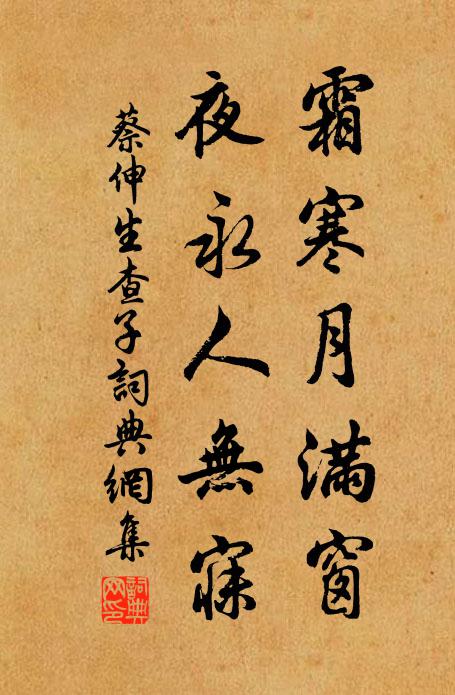 霜寒月滿窗
夜永人無寐
蔡伸生查子詞典網集
詞典
网印